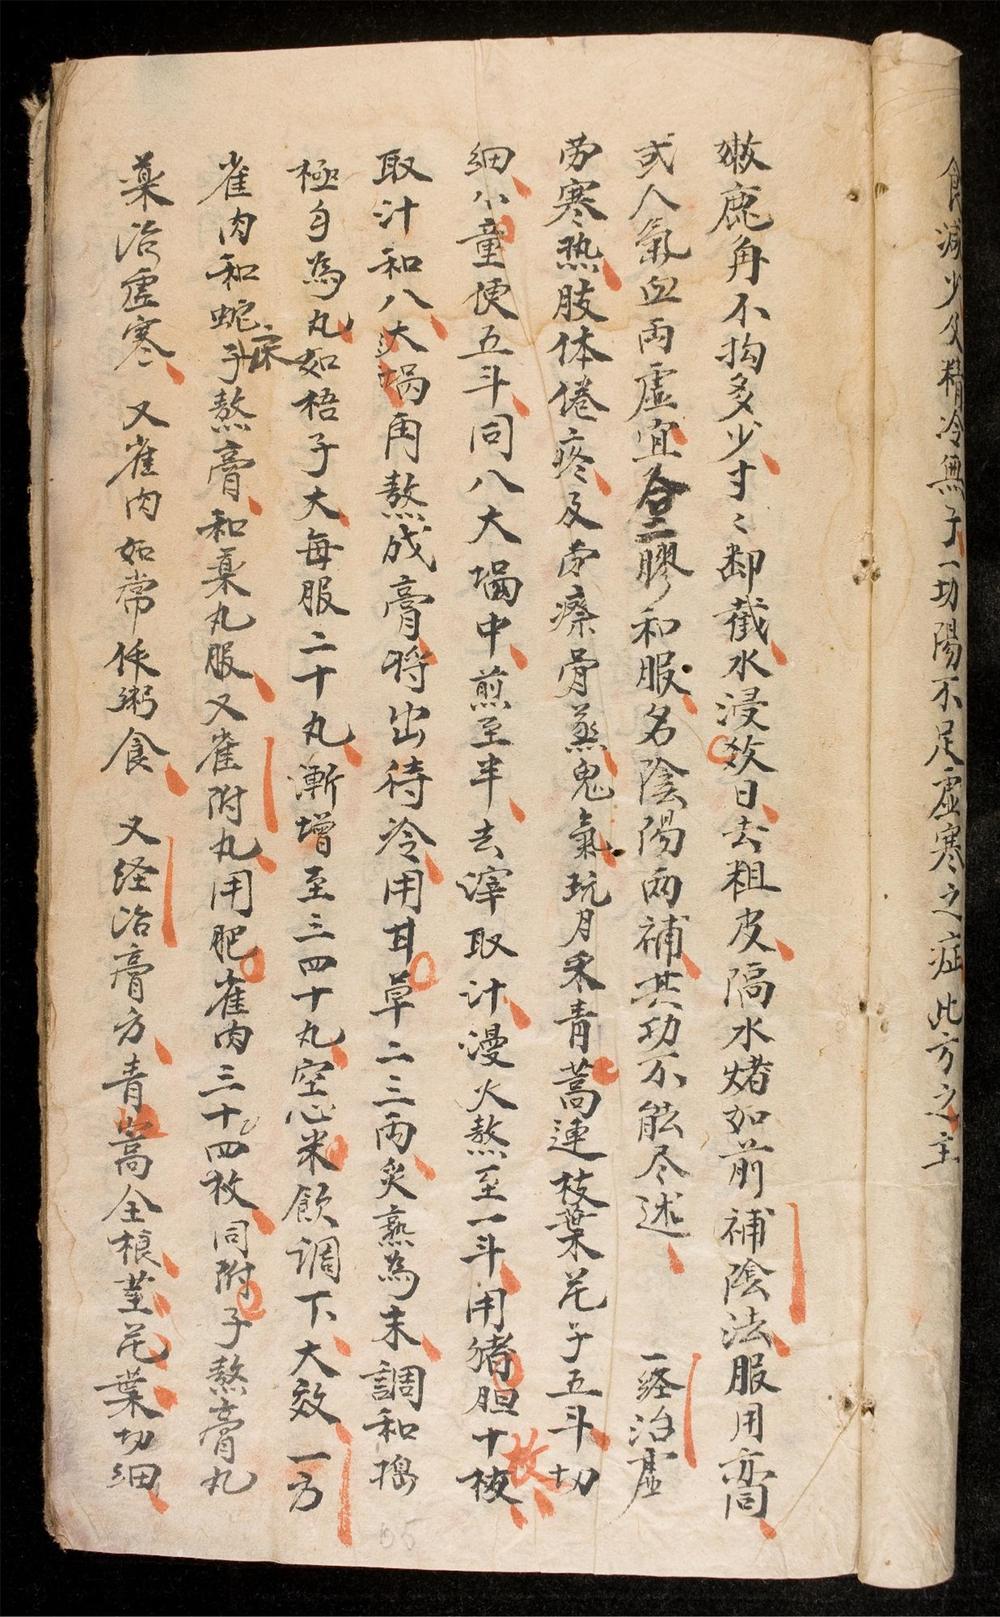 食減少久精冷無子一切陽不足虛寒之症此方之主
嫩鹿角不拘多少寸〻鄀截水浸效日去粗皮隔水煑如前補陰法服用高
或人氣血両虛宜合二膠和服名陰陽両補其功不能尽述　一経治虛
劳寒热肢体倦疼及劳瘵骨蒸鬼氣玩月采青蒿連枝葉花子五斗切
細小童便五斗同八大堝中煎至半去滓取汁漫火熬至一斗用猪胆十枚
取汁和八大堝肉熬成膏将出待冷用甘草二三両炙熹為末調和搗
極匀為丸如梧子大每服二十丸漸增至三四十丸空心米飲调下大效　一方
雀肉和蛇床子熬膏和薬丸服又雀附丸用肥雀肉三十四枚同附子熬膏丸
薬治虛寒　又雀肉如常作粥食　又経治膏方青蒿全根茎花葉切细
枚
65